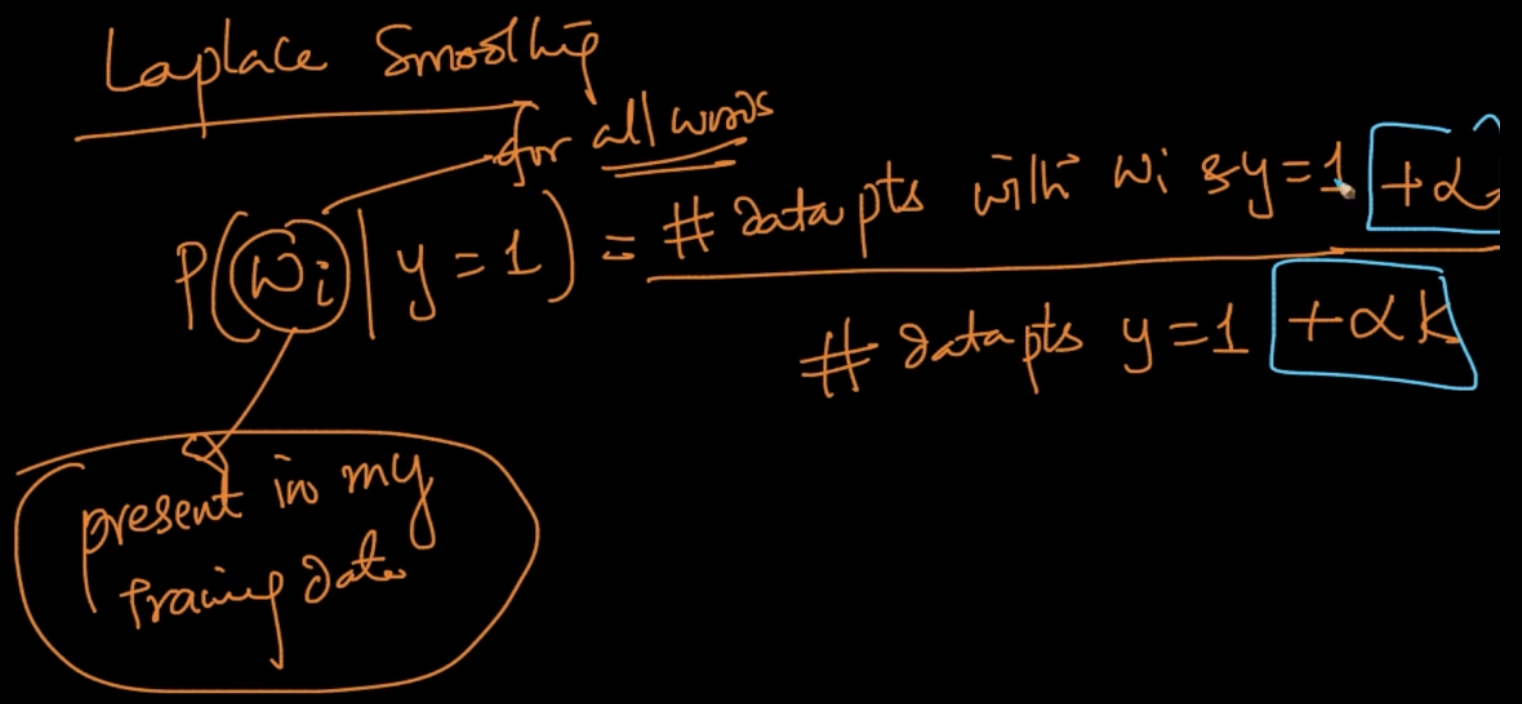 Laplace Smoothing
for all words
P(wi | y = 1) = # data pts with wi & y = 1 + α
# data pts y = 1 + αK
present in my
training data